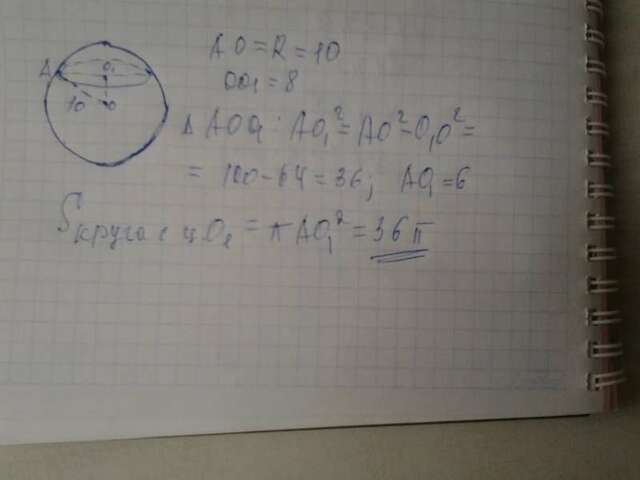 A O₁
10 O
AO = R = 10
OO₁ = 8
Δ AOO₁ : AO₁² = AO² - O₁O² =
= 100 - 64 = 36; AO₁ = 6
Sкруга с ц.O₁ = π AO₁² = 36π